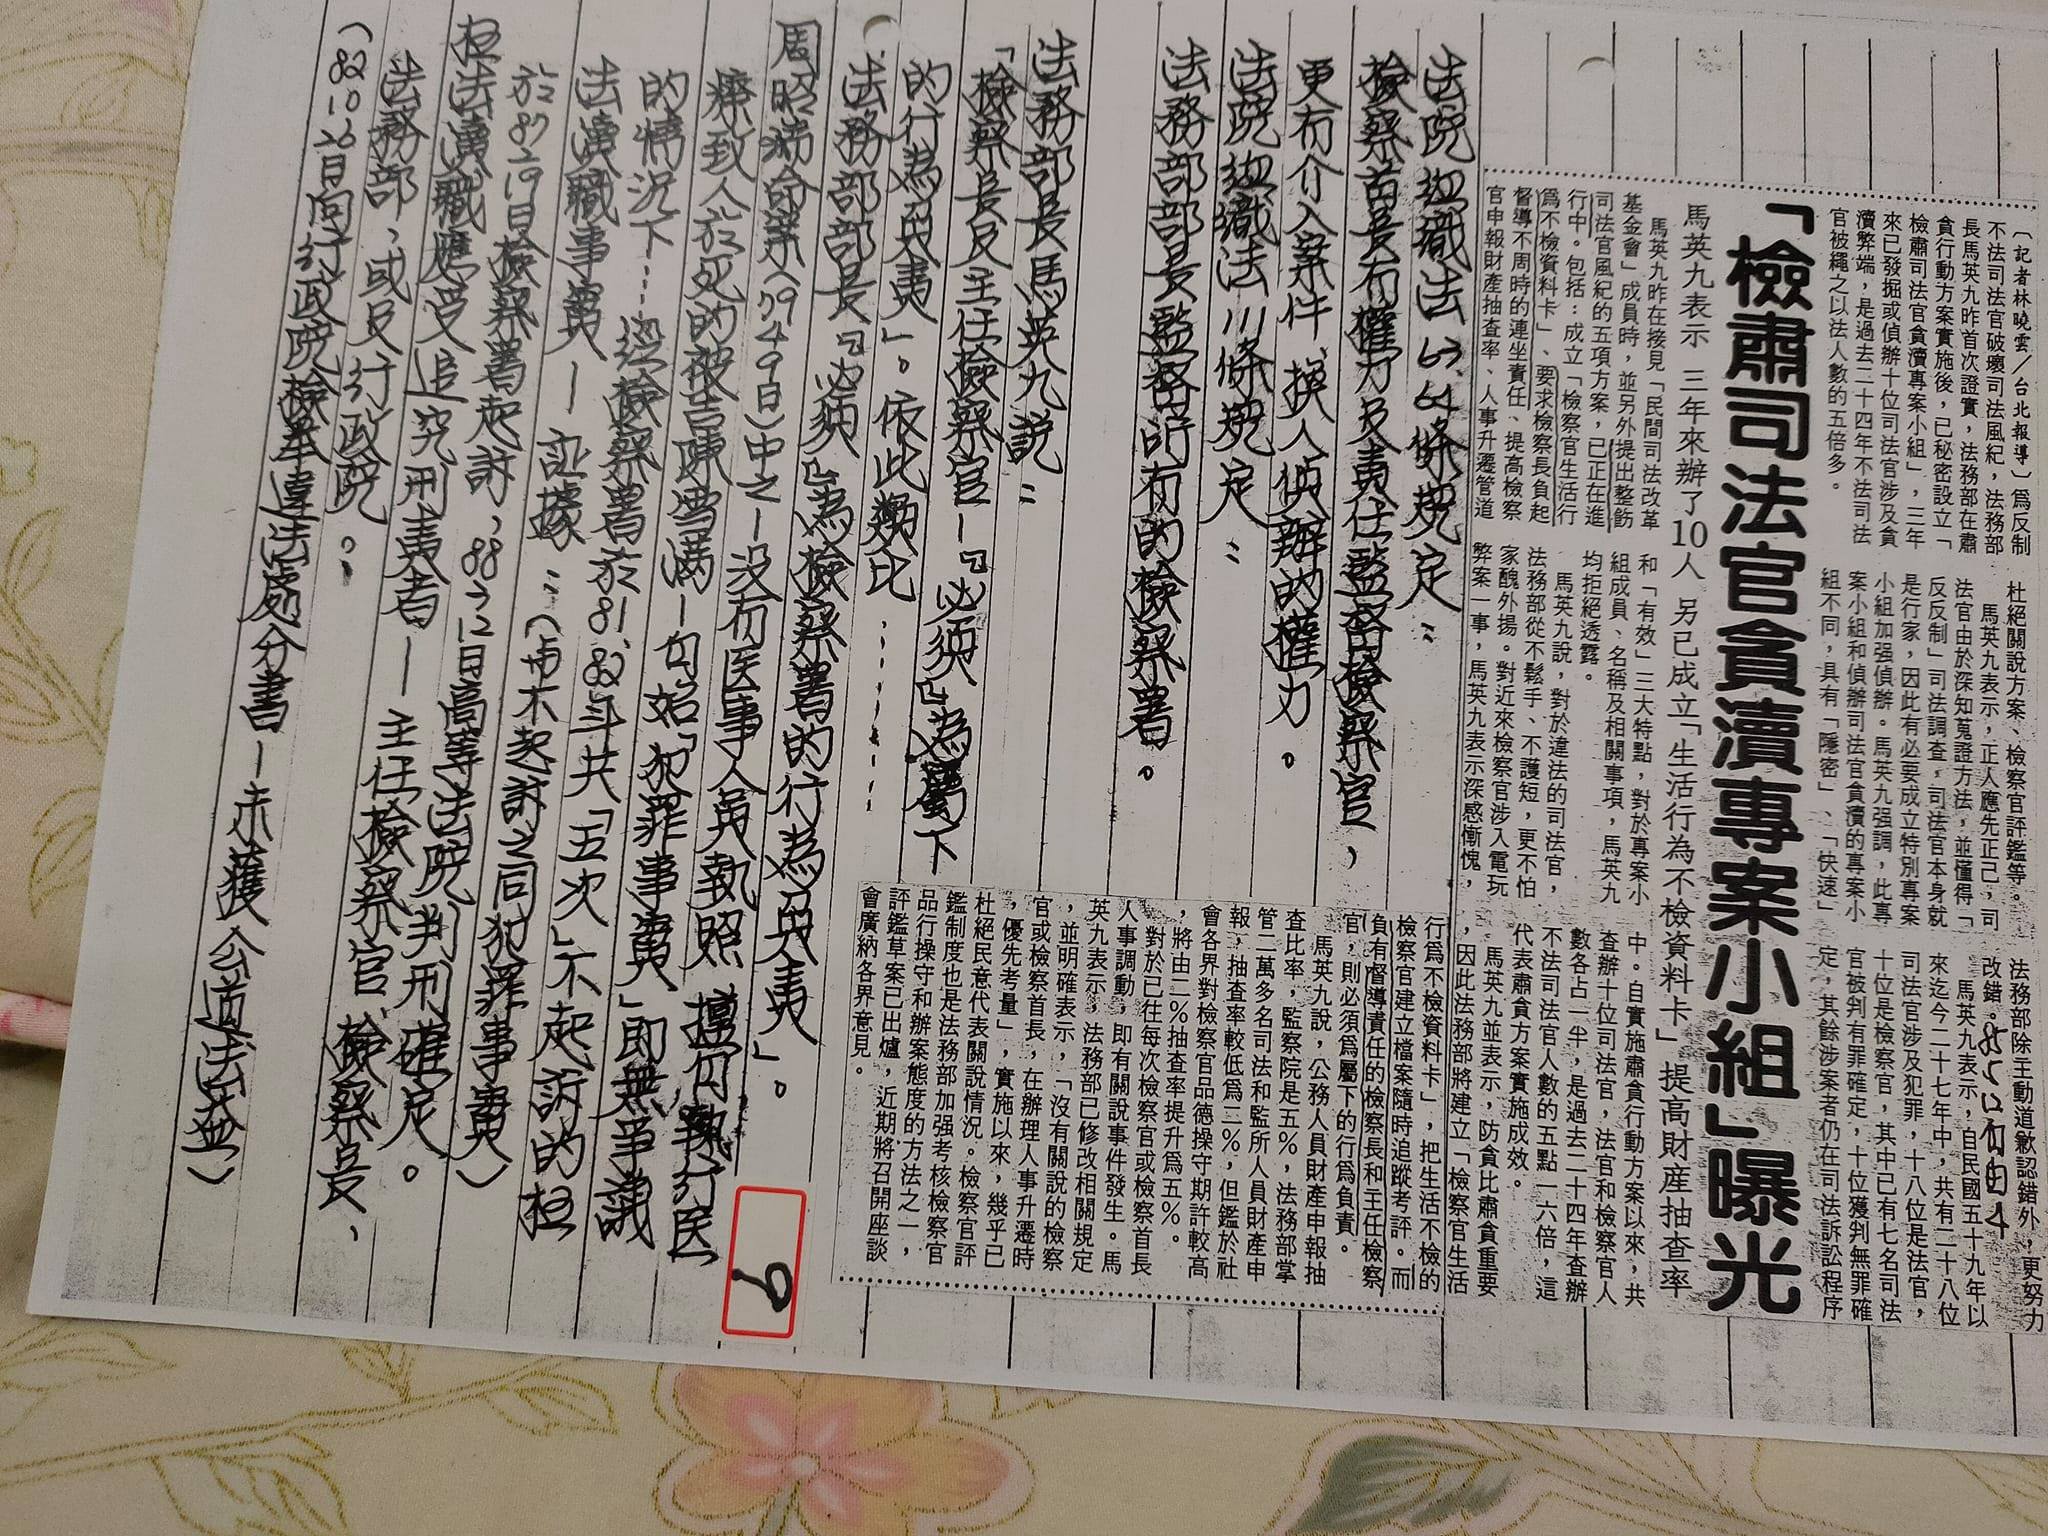 「檢肅司法官貪瀆專案小組」曝光
馬英九表示 三年來辦了10人 另已成立「生活行為不檢資料卡」提高財產抽查率
〔記者林曉雲/台北報導〕為反制
不法司法官破壞司法風紀,法務部
長馬英九昨首次證實,法務部在肅
貪行動方案實施後,已秘密設立「
檢肅司法官貪瀆專案小組」,三年
來已發掘或偵辦十位司法官涉及貪
瀆弊端,是過去二十四年不法司法
官被繩之以法人數的五倍多。
馬英九昨在接見「民間司法改革
基金會」成員時,並另外提出整飭
司法官風紀的五項方案,已正在進
行中。包括:成立「檢察官生活行
為不檢資料卡」、要求檢察長負起
督導不周時的連坐責任、提高檢察
官申報財產抽查率、人事升遷管道
杜絕關說方案、檢察官評鑑等。
馬英九表示,正人應先正己,司
法官由於深知蒐證方法,並懂得「
反反制」司法調查,司法官本身就
是行家,因此有必要成立特別專案
小組加強偵辦。馬英九強調,此專
案小組和偵辦司法官貪瀆的專案小
組不同,具有「隱密」、「快速」
和「有效」三大特點,對於專案小
組成員、名稱及相關事項,馬英九
均拒絕透露。
馬英九說,對於違法的司法官,
法務部從不鬆手、不護短,更不怕
家醜外揚。對近來檢察官涉入電玩
弊案一事,馬英九表示深感慚愧,
法務部除主動道歉認錯外,更努力
改錯。
馬英九表示,自民國五十九年以
來迄今二十七年中,共有二十八位
司法官涉及犯罪,十八位是法官,
十位是檢察官,其中已有七名司法
官被判有罪確定,十位獲判無罪確
定,其餘涉案者仍在司法訴訟程序
中。自實施肅貪行動方案以來,共
查辦十位司法官,法官和檢察官人
數各占一半,是過去二十四年查辦
不法司法官人數的五點一六倍,這
代表肅貪方案實施成效。
馬英九並表示,防貪比肅貪重要
,因此法務部將建立「檢察官生活
行為不檢資料卡」,把生活不檢的
檢察官建立檔案隨時追蹤考評。而
負有督導責任的檢察長和主任檢察
官,則必須為屬下的行為負責。
馬英九說,公務人員財產申報抽
查比率,監察院是五%,法務部掌
管二萬多名司法和監所人員財產申
報,抽查率較低為二%,但鑑於社
會各界對檢察官品德操守期許較高
,將由二%抽查率提升為五%。
對於已往每次檢察官或檢察首長
人事調動,即有關說事件發生。馬
英九表示,法務部已修改相關規定
,並明確表示,「沒有關說的檢察
官或檢察首長,在辦理人事升遷時
,優先考量」,實施以來,幾乎已
杜絕民意代表關說情況。檢察官評
鑑制度也是法務部加強考核檢察官
品行操守和辦案態度的方法之一,
評鑑草案已出爐,近期將召開座談
會廣納各界意見。
法院組織法63、64條規定:
檢察首長有權力及責任監督檢察官,
更有介入案件、換人偵辦的權力。
法院組織法111條規定:
法務部部長監督所有的檢察署。
法務部長馬英九說:
「檢察長及主任檢察官—『必須』為屬下
的行為負責」。依此類比……
法務部部長『必須』為檢察署的行為負責」。
周昭瑞命案(79 4 9日)中之—没有医事人員執照,擅行執行医
療致人於死的被告陳雪滿—勾始「犯罪事實」即無爭議
的情況下……逕檢察署於81、82年共「五次」不起訴的枉
法瀆職事實—証據:(与不起訴之同犯罪事實)
於87 2 19日檢察署起訴,88 7 12日高等法院判刑確定。
枉法瀆職應受追究刑責者—主任檢察官、檢察長、
法務部,或及行政院。
(82 10 26日向行政院檢舉違法處分書—未獲公道法益)
6